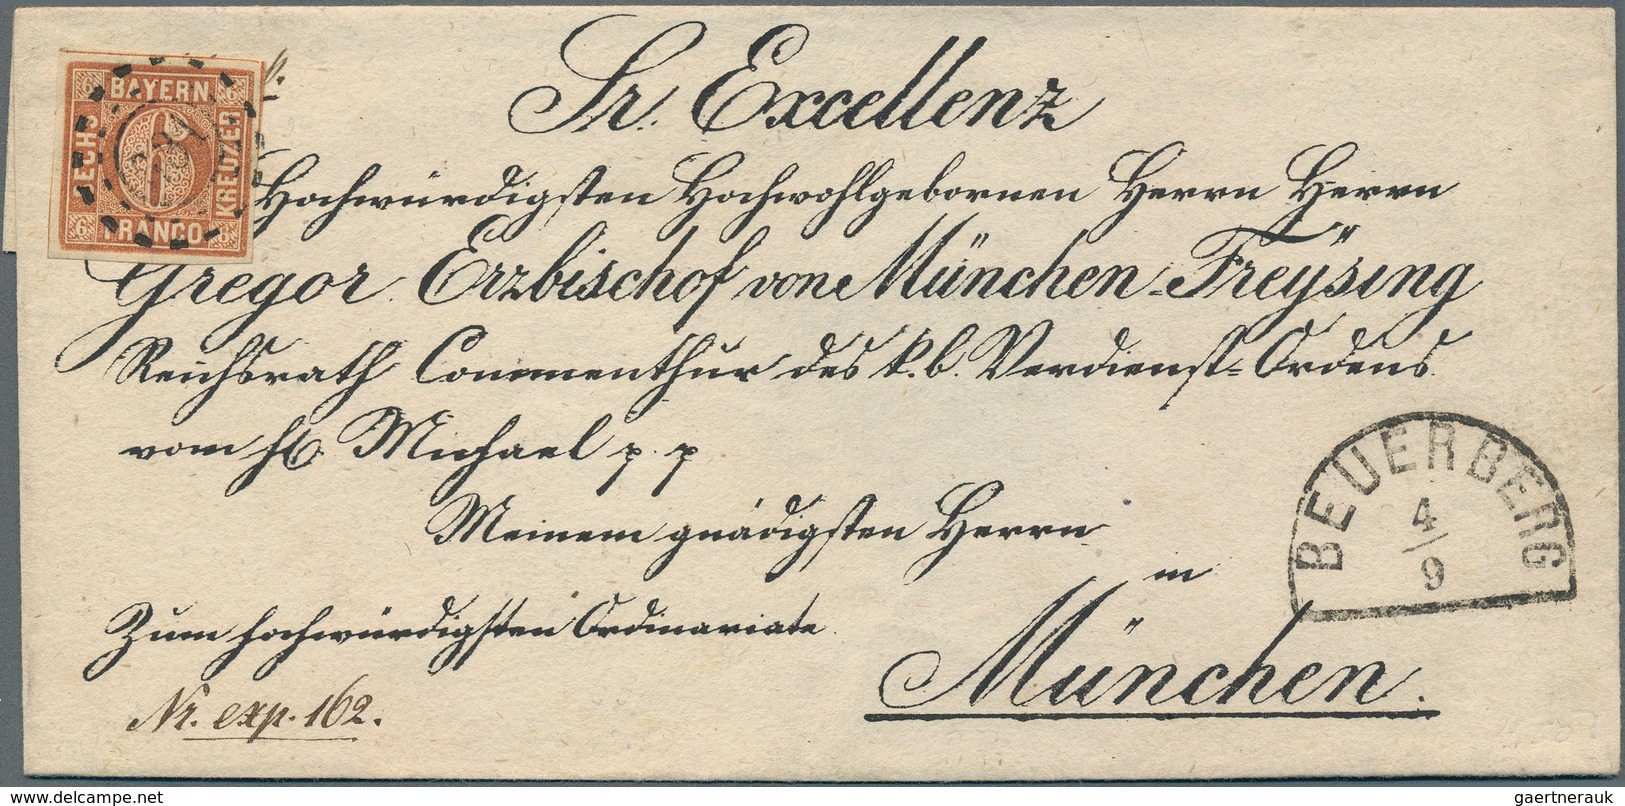 BAYERN
SECHS
KREUZER
FRANCO
6 6 6 6
6
Sr. Excellenz
Hochwürdigsten Hochwohlgebornen Herrn Herrn
Gregor Erzbischof von München-Freÿsing
Reichsrath Commenthur des k. b. Verdienst-Ordens
vom hl. Michael p. p
Meinem gnädigsten Herrn
in
Zum hochwürdigsten Ordinariate.
München.
Nr. exp. 162.
BEUERBERG
4/9
delcampe.net
gaertnerauk